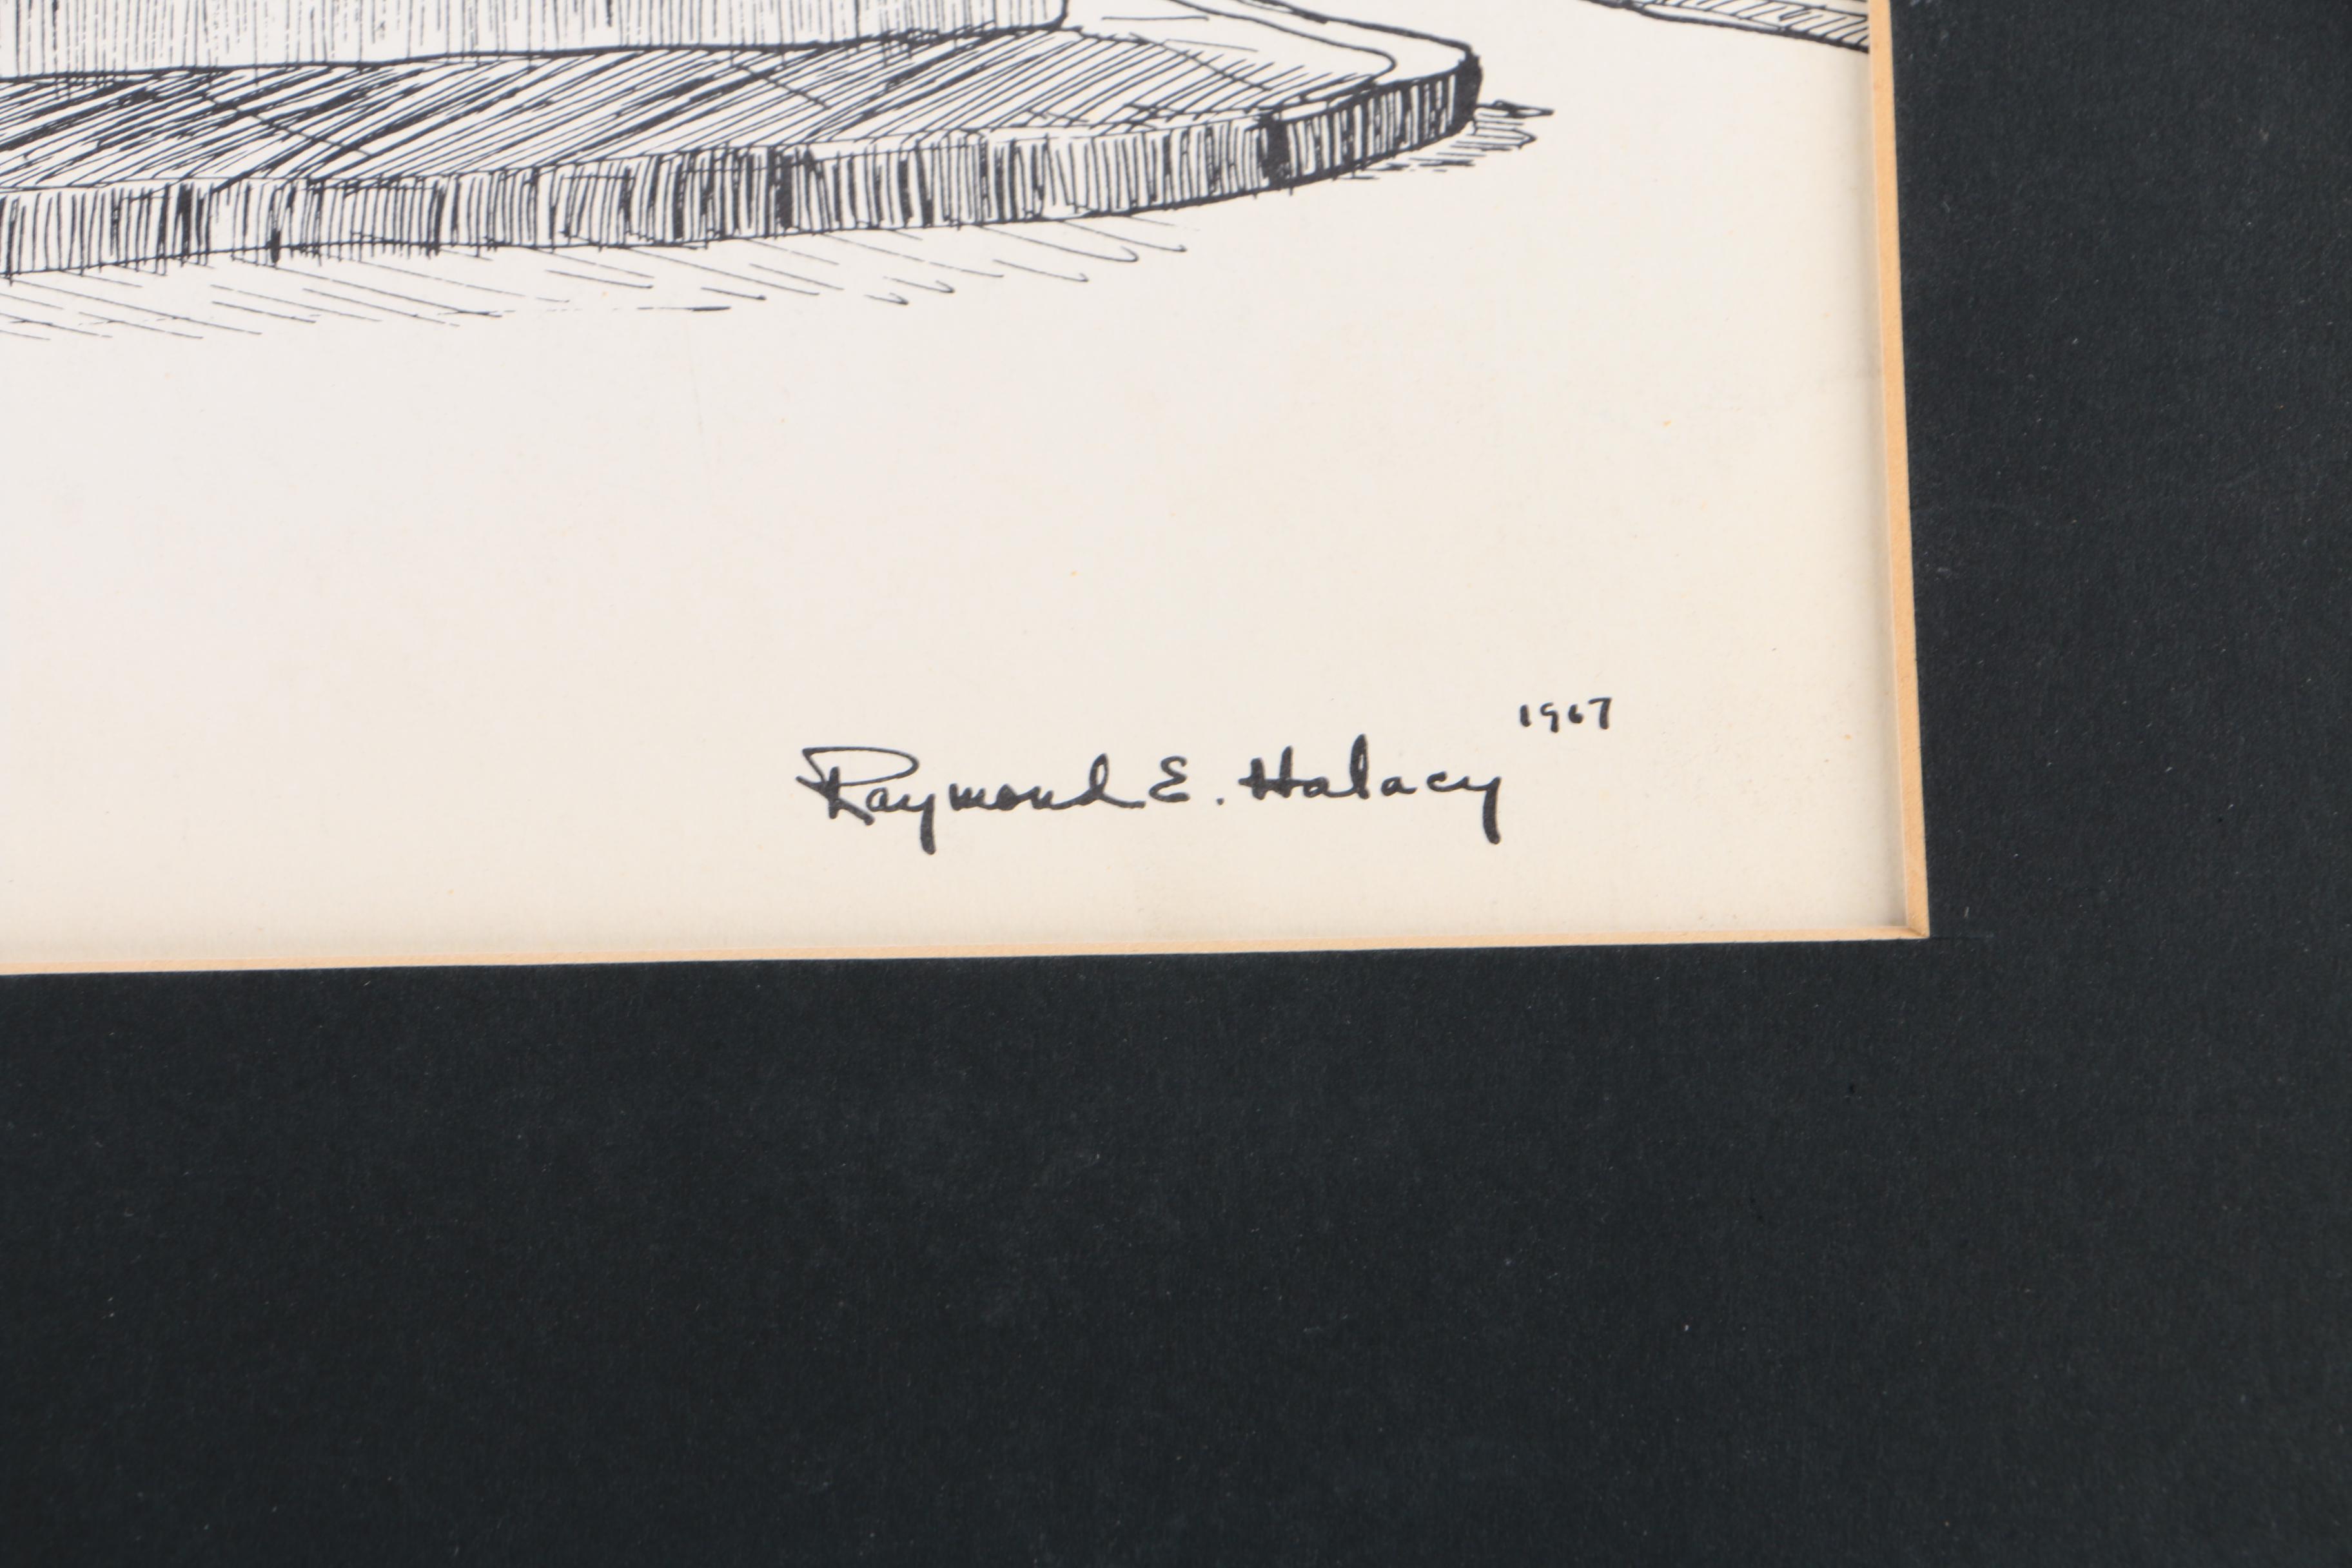 Raymond E. Halacy 1967